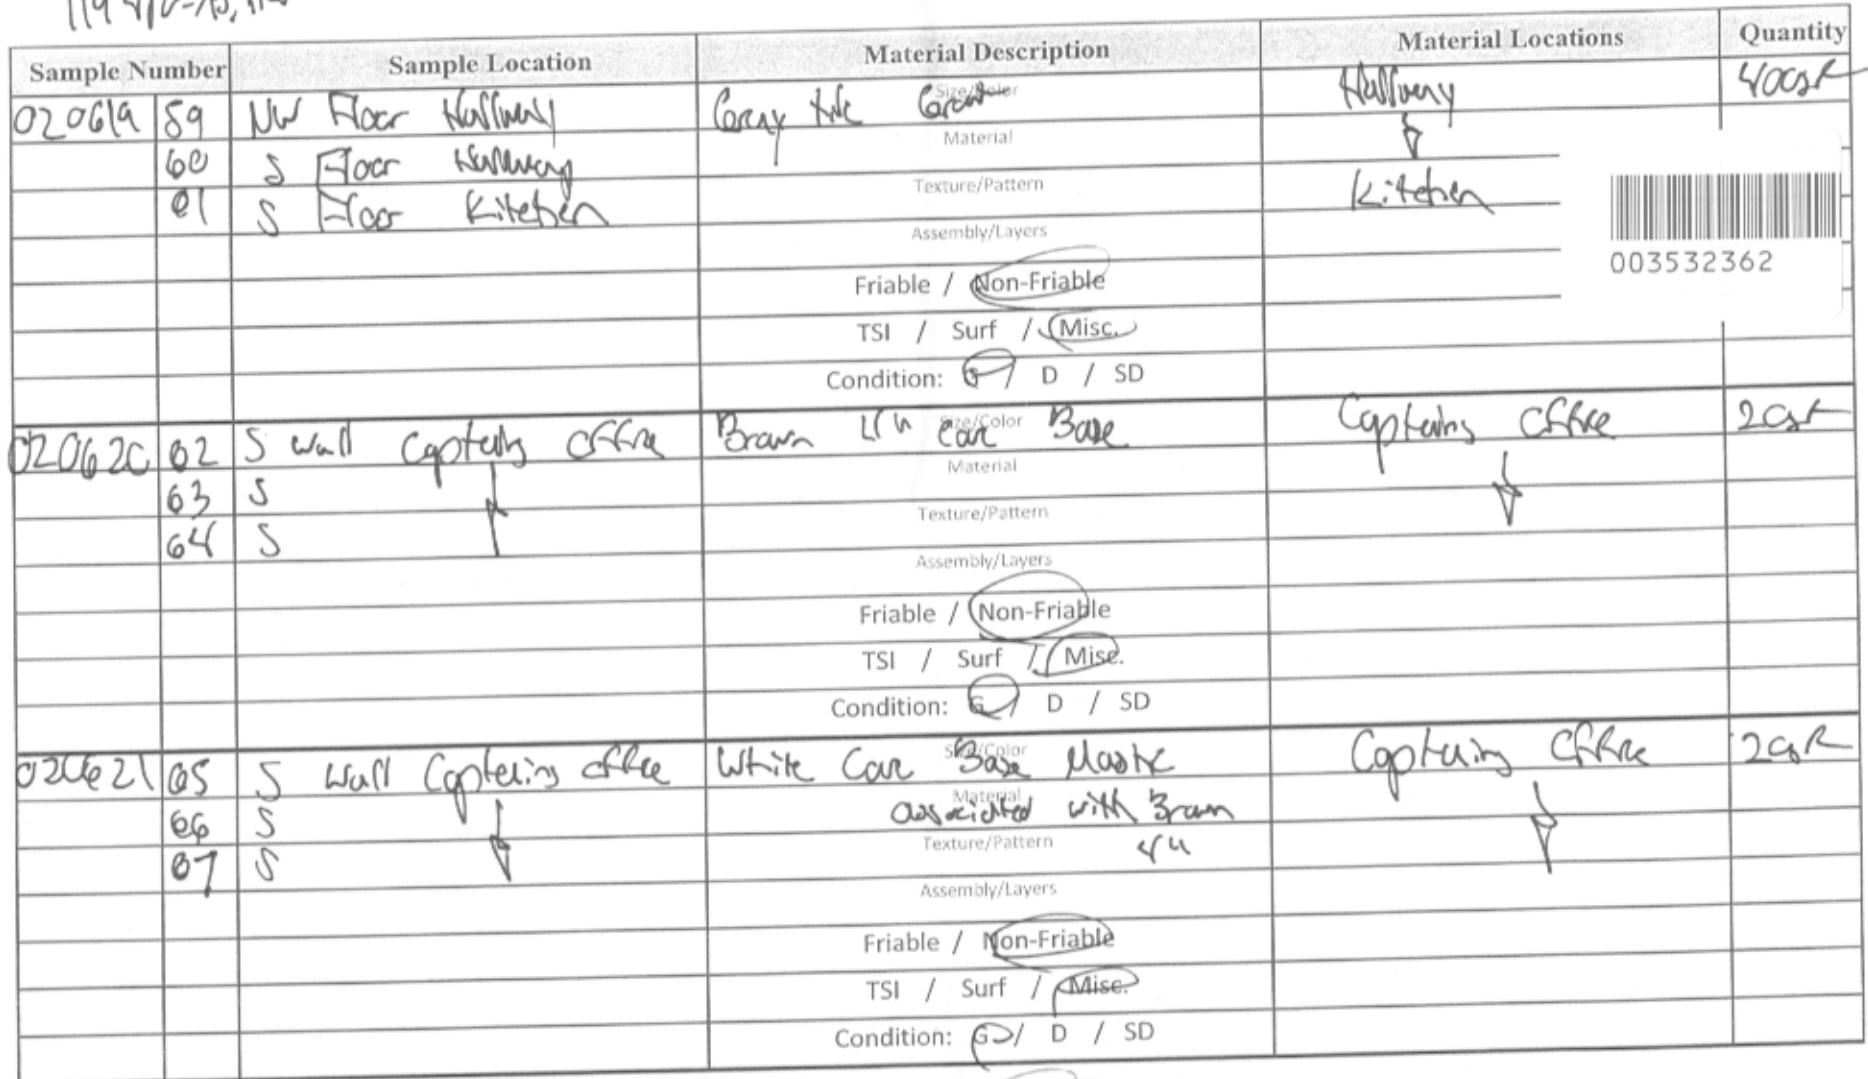 Sample Number Sample Location Material Description Material Locations Quantity
020619 59 NW Floor Hallway Gray tile Grout Size/Color Hallway 400SF
60 S Floor Hallway Material
61 S Floor Kitchen Texture/Pattern Kitchen
Assembly/Layers
003532362
Friable / Non-Friable
TSI / Surf / Misc.
Condition: G / D / SD
020620 62 S wall Captains Office Brown 4" Cove Base Size/Color Captains Office 20SF
63 S Material
64 S Texture/Pattern
Assembly/Layers
Friable / Non-Friable
TSI / Surf / Misc.
Condition: G / D / SD
020621 65 S Wall Captains Office White Cove Base Mastic Size/Color Captains Office 20SF
66 S Material associated with Brown
67 S Texture/Pattern 4"
Assembly/Layers
Friable / Non-Friable
TSI / Surf / Misc.
Condition: G / D / SD